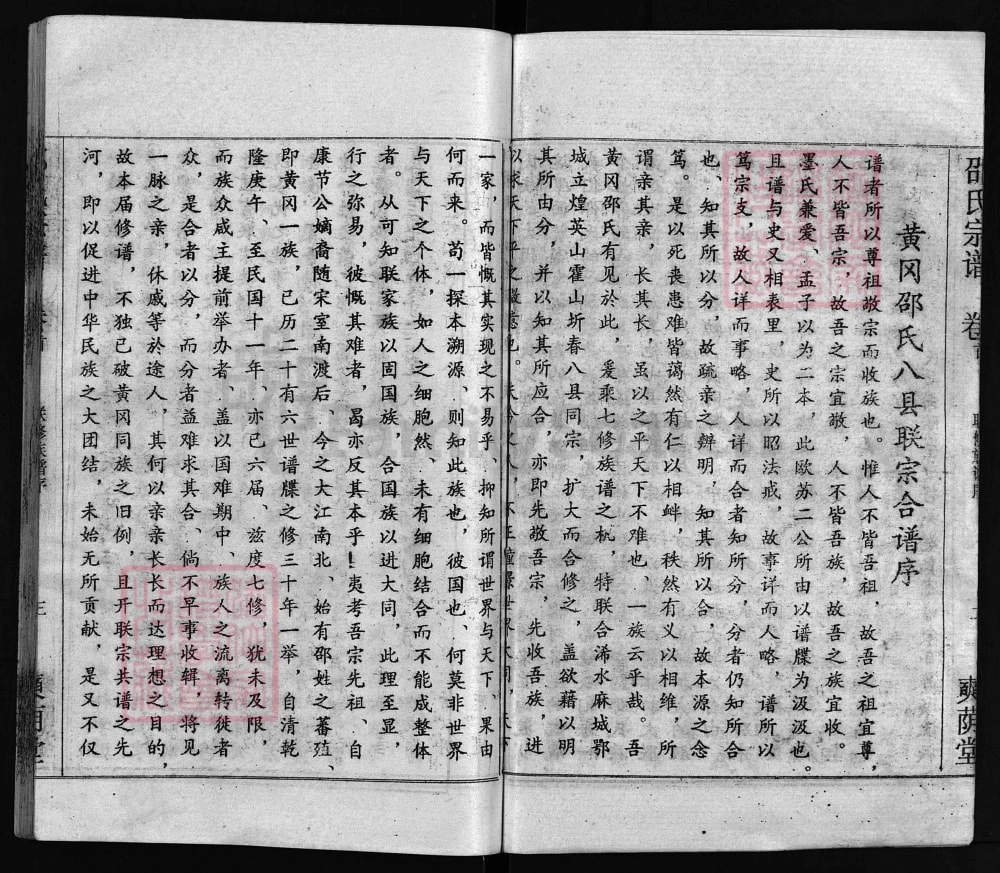 邵氏宗谱
卷首
奭荫堂
黄冈邵氏八县联宗合谱序
谱者所以尊祖敬宗而收族也。惟人不皆吾祖，故吾之祖宜尊，
人不皆吾宗，故吾之宗宜敬，人不皆吾族，故吾之族宜收。
墨氏兼爱、孟子以为二本，此欧苏二公所由以谱牒为汲汲也。
且谱与史又相表里，史所以昭法戒，故事详而人略，谱所以
笃宗支，故人详而事略，人详而合者知所分，分者仍知所合
也、知其所以分，故疏亲之辨明，知其所以合，故本源之念
笃。是以死丧患难皆蔼然有仁以相衅，秩然有义以相维，所
谓亲其亲，长其长，虽以之平天下不难也、一族云乎哉。吾
黄冈邵氏有见於此，爰乘七修族谱之机，特联合浠水麻城鄂
城立煌英山霍山圻春八县同宗，扩大而合修之，盖欲藉以明
其所由分，并以知其所应合，亦即先敬吾宗，先收吾族，进
以求天下平之
一家，而皆慨其实现之不易乎、抑知所谓世界与天下、果由
何而来。苟一探本溯源、则知此族也，彼国也、何莫非世界
与天下之个体，如人之细胞然、未有细胞结合而不能成整体
者。从可知联家族以固国族，合国族以进大同，此理至显，
行之弥易，彼慨其难者，曷亦反其本乎！夷考吾宗先祖、自
康节公嫡裔随宋室南渡后、今之大江南北、始有邵姓之蕃殖、
即黄冈一族，已历二十有六世谱牒之修三十年一举，自清乾
隆庚午、至民国十一年，亦已六届、兹度七修，犹未及限，
而族众咸主提前举办者、盖以国难期中、族人之流离转徙者
众，是合者以分，而分者益难求其合、倘不早事收辑，将见
一脉之亲，休戚等於途人，其何以亲亲长长而达理想之目的，
故本届修谱，不独已破黄冈同族之旧例，且开联宗共谱之先
河，即以促进中华民族之大团结，未始无所贡献，是又不仅
联修族谱序
三